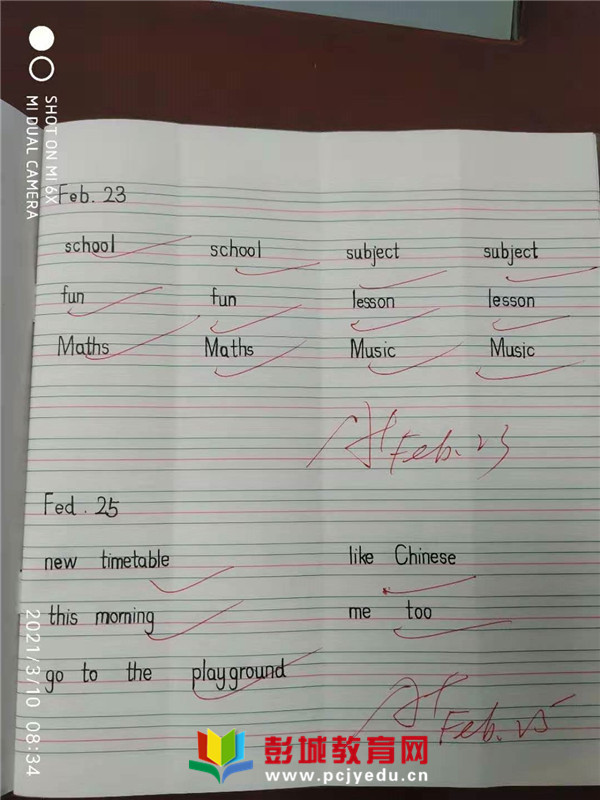 SHOT ON MI 6X
MI DUAL CAMERA
Feb. 23
school school subject subject
fun fun lesson lesson
Maths Maths Music Music
A+ Feb. 23
Fed. 25
new timetable like Chinese
this morning me too
go to the playground
A+ Feb. 25
2021/3/10 08:34
彭城教育网
www.pcjyedu.cn